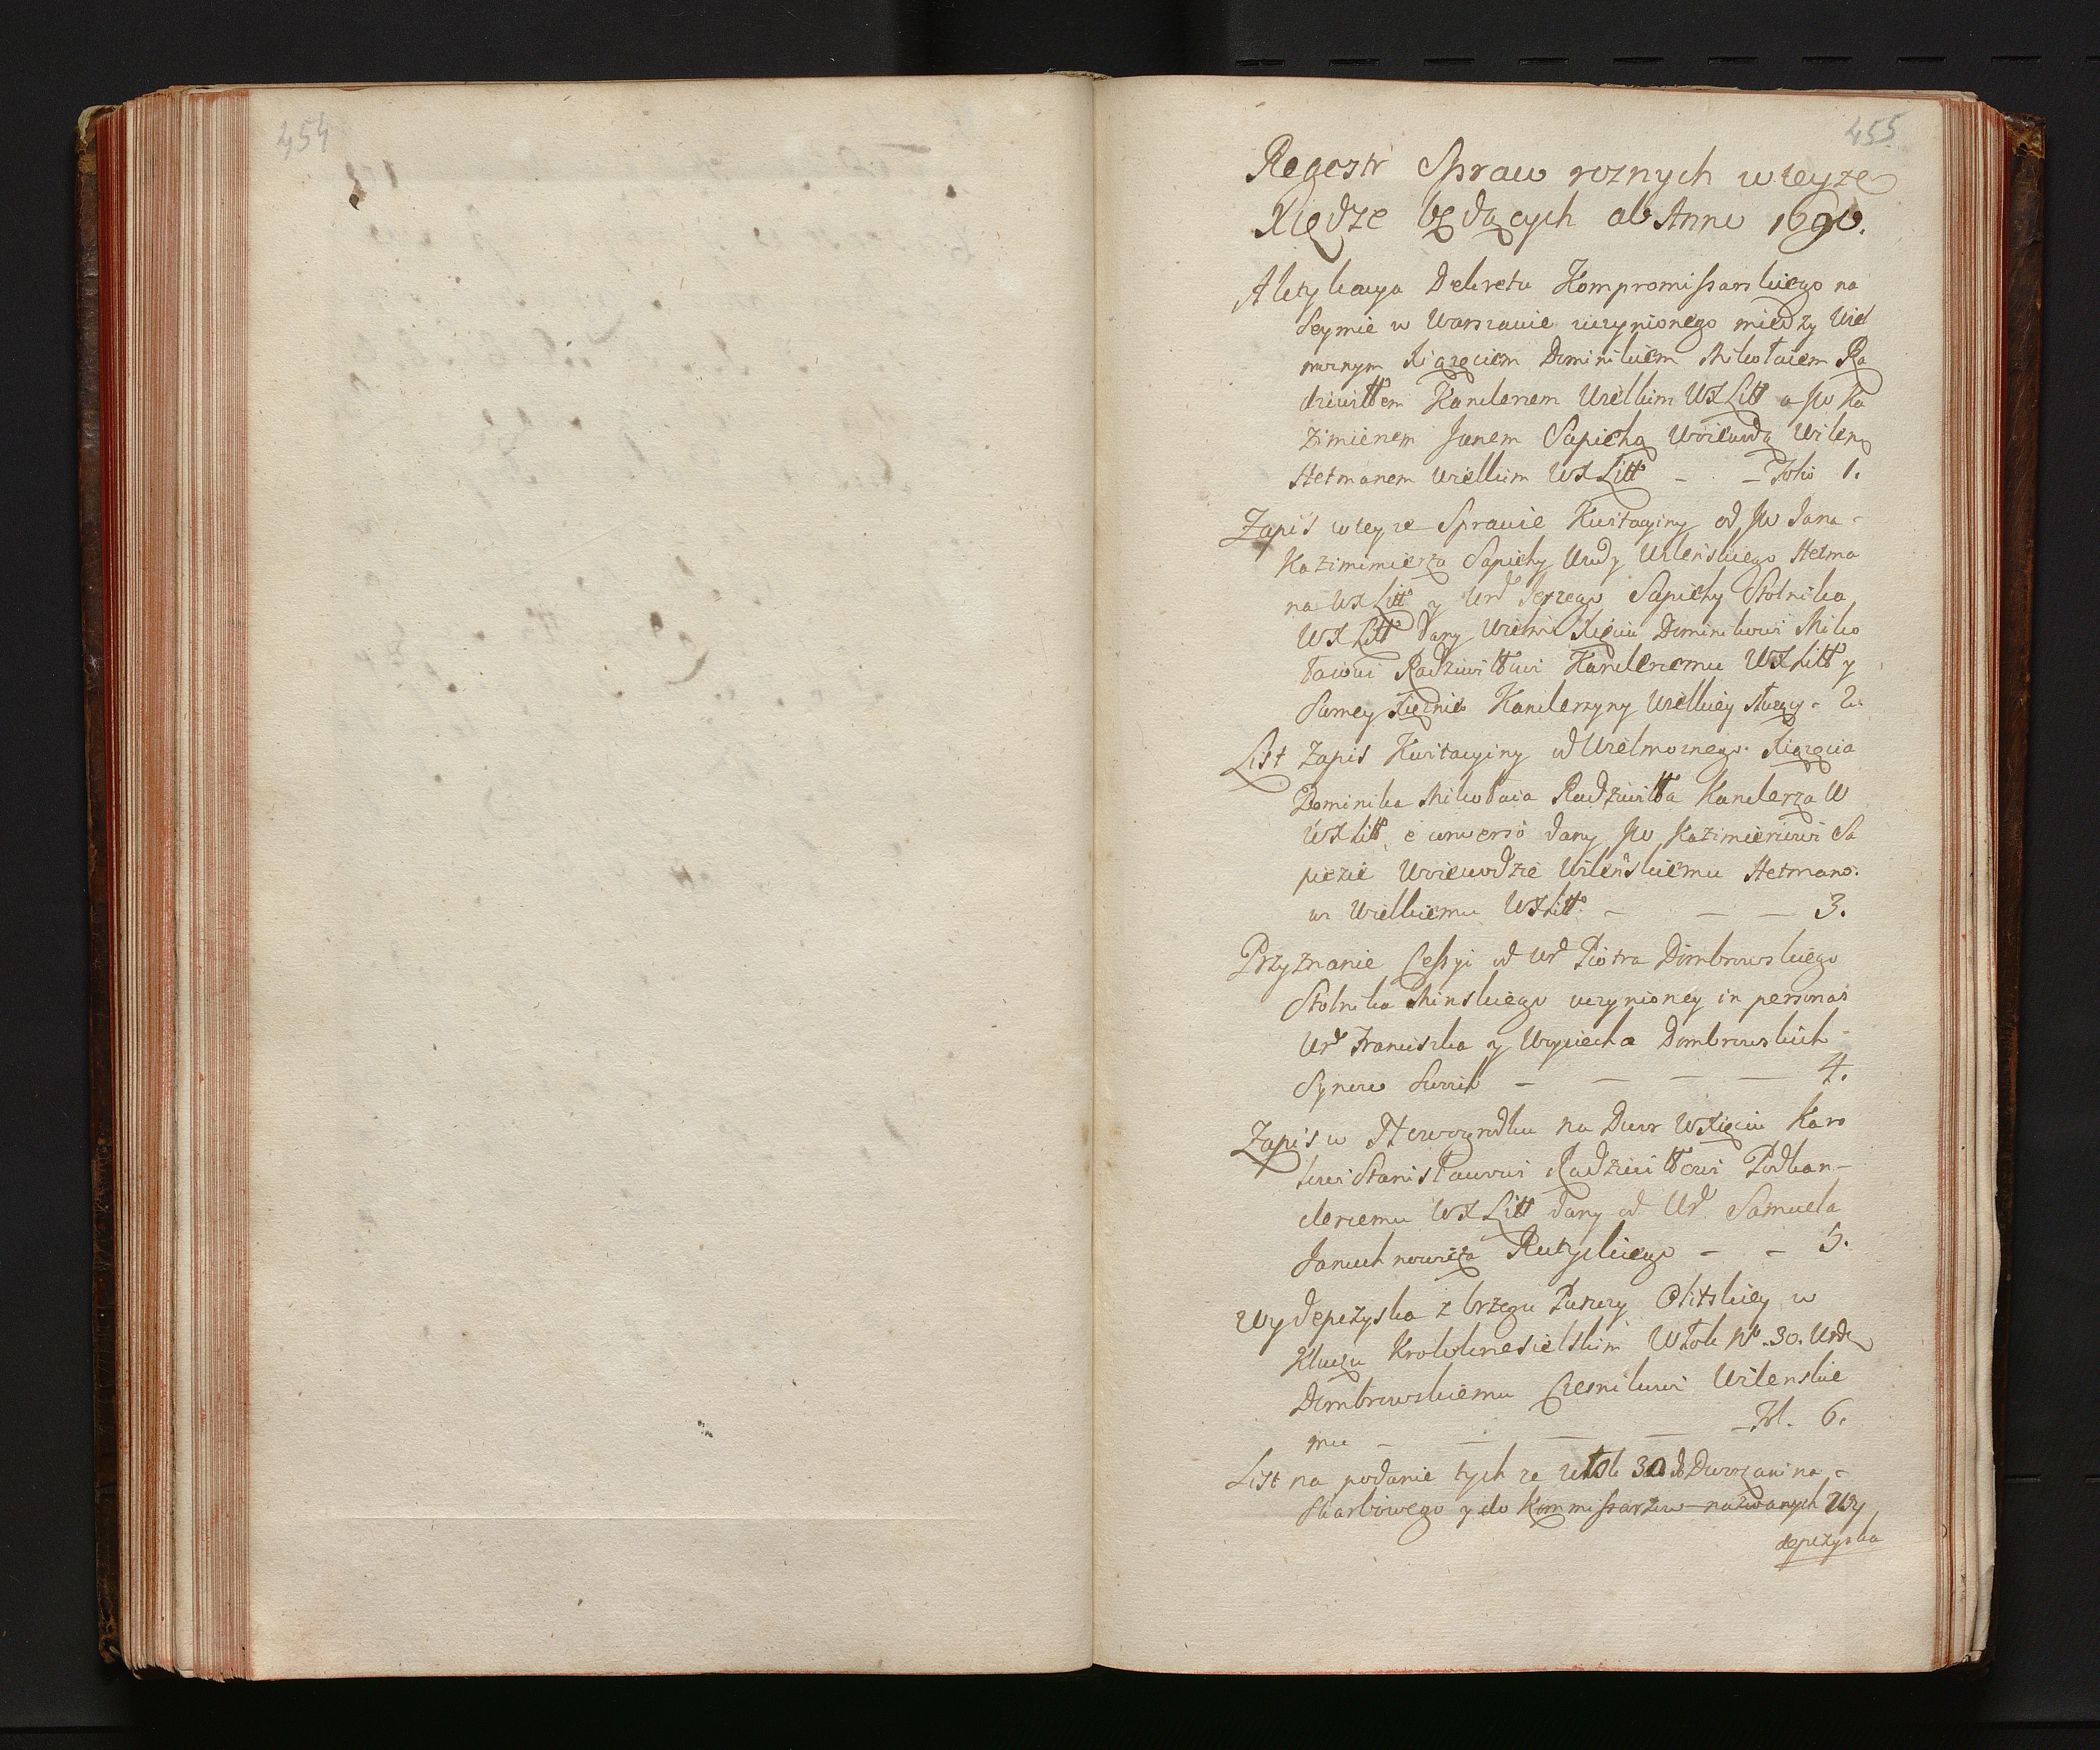 454
455
Regestr Spraw roznych w teyze
Xiędze będących ab Anno 1690.
Aktykacya Dekretu Kompromissarskiego na
Seymie w Warszawie uczynionego między Wiel
moznym Xiązęciem Dominikiem Mikołaiem Ra
dziwiłłem Kanclerzem Wielkim WXLitt a JW Ka
zimierzem Janem Sapiehą Woiewodą Wilen
Hetmanem Wielkim WXLitt – – Folio 1.
Zapis w teyze Sprawie Kwitacyiny od JW Jana
Kazimimierza Sapiehy Wwdy Wilenskiego Hetma
na WXLitt y Ur Jerzego Sapiehy Stolnika
WXLitt dany Wielm Xięciu Dominikowi Miko
łaiowi Radziwiłłowi Kanclerzemu WXLitt y
Samey Xiężnie Kanclerzyny Wielkiey służący - 2.
List Zapis Kwitacyiny od Wielmoznego Xiązęcia
Dominika Mikołaia Radziwiłła Kanclerza W
WXLitt, e converso dany JW Kazimierzowi Sa
piezie Woiewodzie Wileńskiemu Hetmano
wi Wielkiemu WXLitt. – – – 3.
Przyznanie Cessyi od Ur Piotra Dombrowskiego
Stolnika Minskiego uczynioney in personas
Ur Franciszka y Woyciecha Dombrowskich
Synow Swoich – – – – 4.
Zapis w Nowogrodku na Dwor WXięciu Karo
lowi Stanisławowi Radziwiłłowi Podkan-
clerzemu WXLitt dany od Ur Samuela
Januchnowicza Rutyckiego – – 5.
Wydepczyska z brzegu Puszczy Olitskiey w
Kluczu Krolokrzesielskim Włok No. 30. Urdz
Dombrowskiemu Czesnikowi Wilenskie
mu – – – – – Fol. 6.
List na podanie tych ze włok 30 do Dworzanina -
Skarbowego y do Kommissarzow nazwanych Wy
depczyska